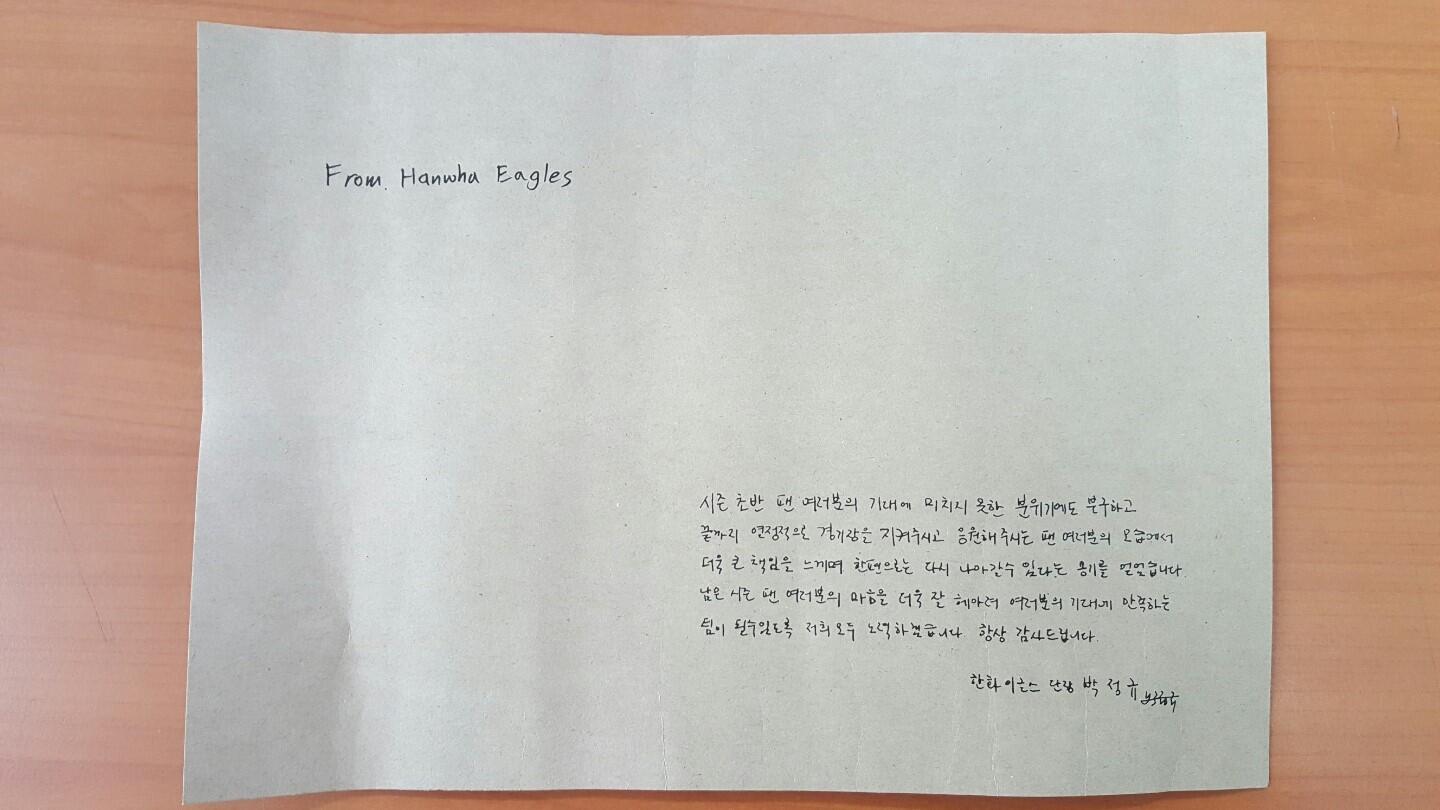 From. Hanwha Eagles
시즌 초반 팬 여러분의 기대에 미치지 못한 분위기에도 불구하고
끝까지 열정적으로 경기장을 지켜주시고 응원해주시는 팬 여러분의 모습에서
더욱 큰 책임을 느끼며 한편으로는 다시 나아갈수 있다는 용기를 얻었습니다.
남은 시즌 팬 여러분의 마음을 더욱 잘 헤아려 여러분의 기대에 만족하는
팀이 될수있도록 저희 모두 노력하겠습니다. 항상 감사드립니다.
한화이글스 단장 박 정 규